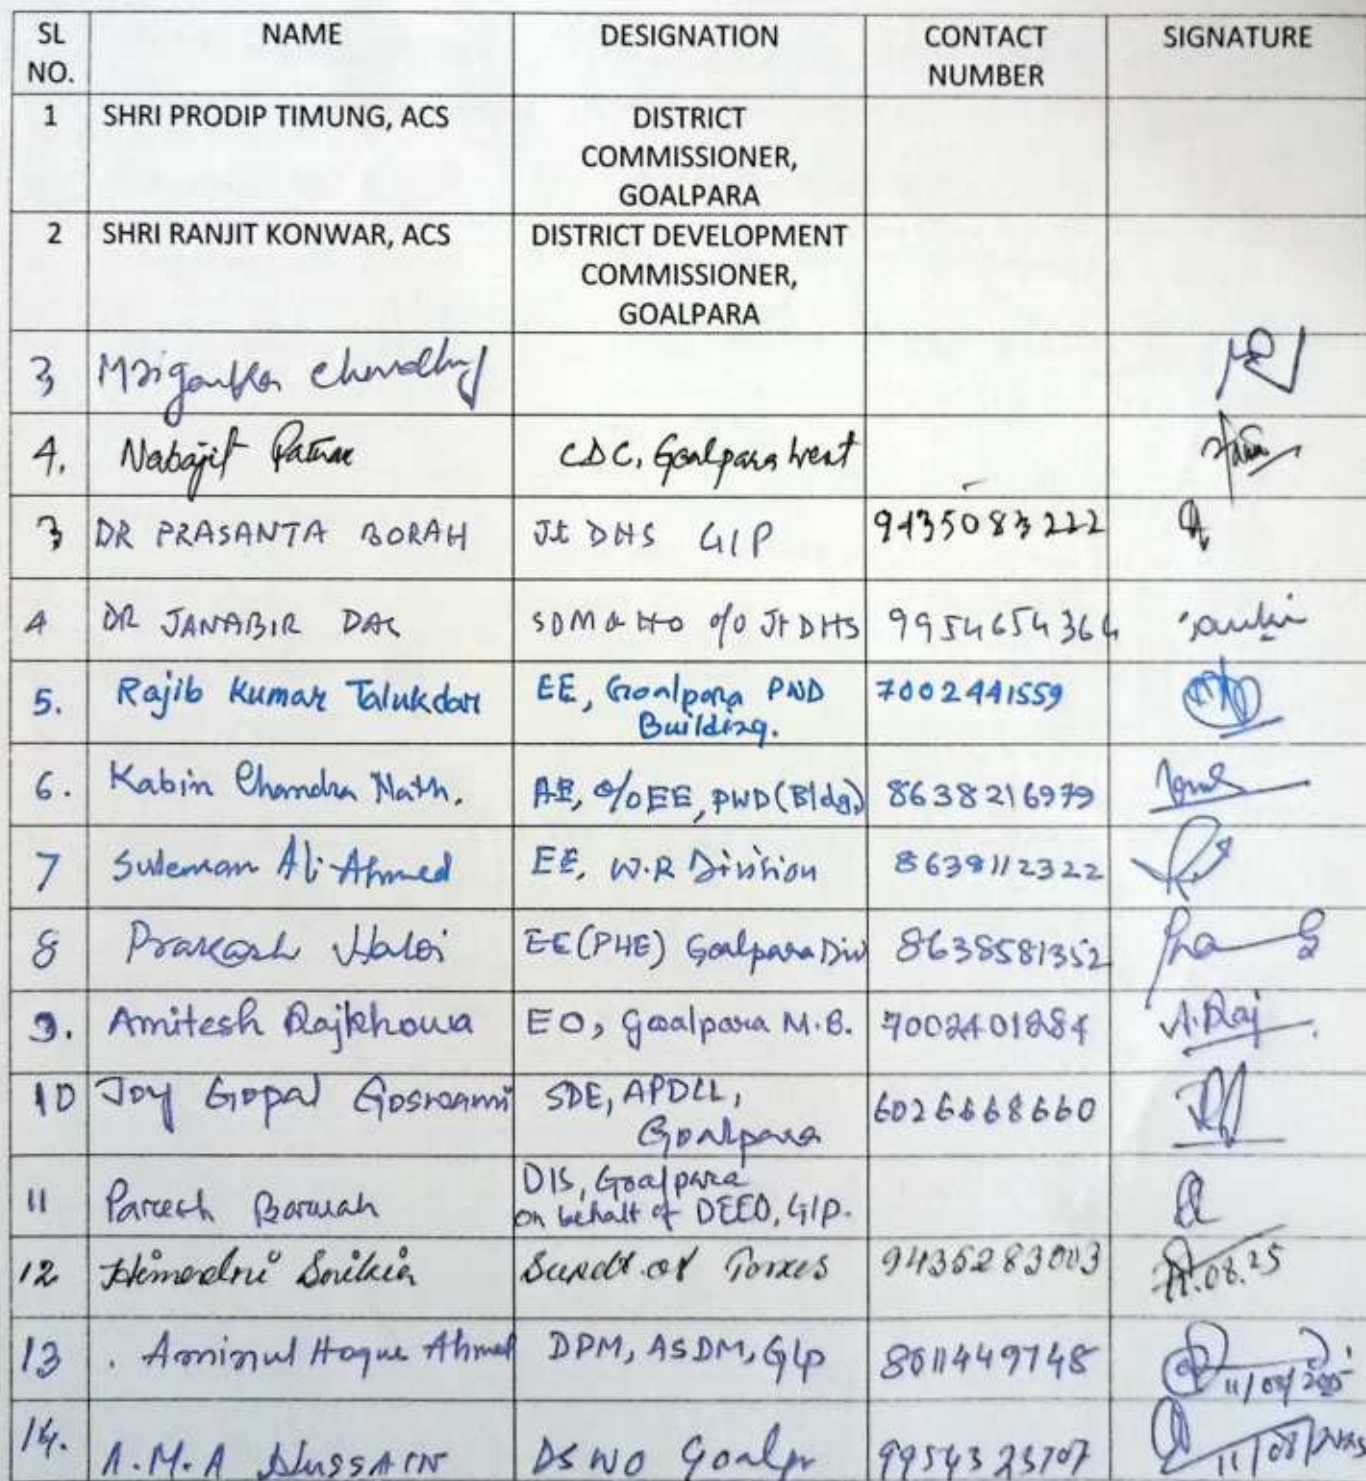 SL NO. NAME DESIGNATION CONTACT NUMBER SIGNATURE
1 SHRI PRODIP TIMUNG, ACS DISTRICT COMMISSIONER, GOALPARA
2 SHRI RANJIT KONWAR, ACS DISTRICT DEVELOPMENT COMMISSIONER, GOALPARA
3 Mriganka Choudhury
4. Nabajit Pathak CDC, Goalpara West
3 DR PRASANTA BORAH Jt DHS GLP 9435083222
4 DR JANABIR DAS SDM & HO o/o Jt DHS 9954654364
5. Rajib Kumar Talukdar EE, Goalpara PWD Building. 7002441559
6. Kabin Chandra Nath. AE, o/o EE, PWD (Bldg) 8638216979
7 Suleman Ali Ahmed EE, W.R Division 8638112322
8 Prakash Haloi EE (PHE) Goalpara Div 8638581352
9. Amitesh Rajkhowa EO, Goalpara M.B. 7002401284 A. Raj
10 Joy Gopal Goswami SDE, APDCL, Goalpara 6026668660
11 Paresh Baruah DIS, Goalpara on behalf of DEEO, GLP.
12 Himadri Saikia Supdt. of Taxes 9435283003 11.08.25
13 Aminul Hoque Ahmed DPM, ASDM, Glp 8011449748 11/08/2025
14. A.M.A HUSSAIN DSWO 9954323707 11/08/2025